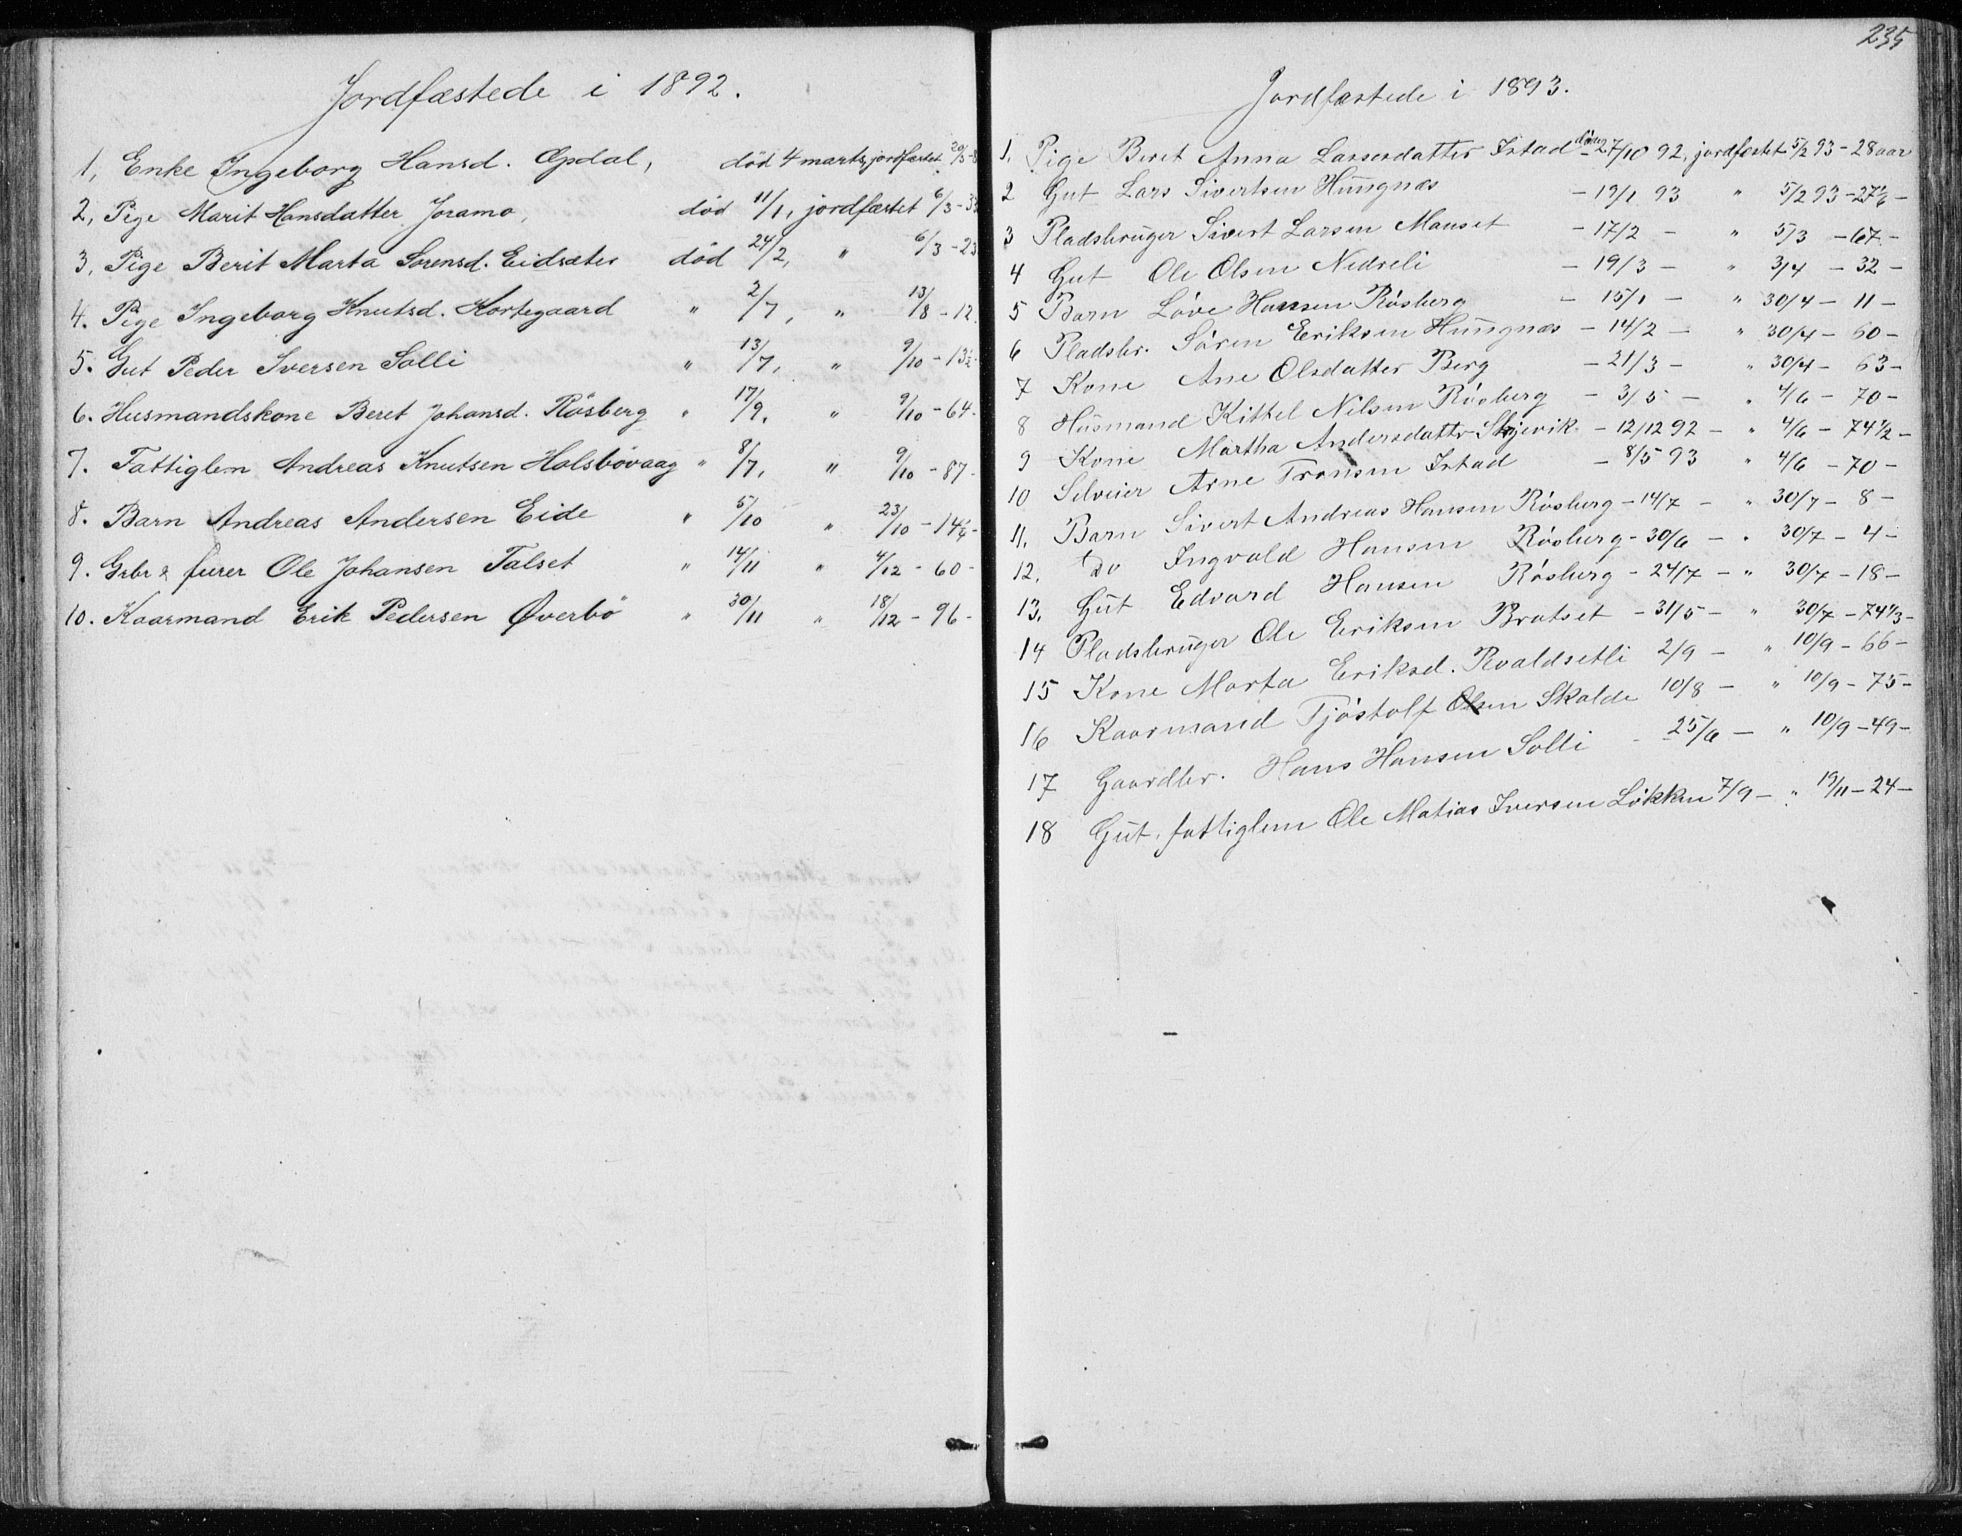 Jordfæstede i 1892.
1, Enke Ingeborg Hansd. Opdal, død 4 marts, jordfæstet 20/3 - 8
2, Pige Marit Hansdatter Joramo, død 11/1, jordfæstet 6/3 - 33
3, Pige Berit Marta Sørensd. Eidsæter død 24/2, " 6/3 - 23
4. Pige Ingeborg Knutsd. Kortegaard " 2/7, " 13/8 - 12
5. Gut Peder Iversen Solli " 13/7, " 9/10 - 13½
6. Husmandskone Beret Johansd. Rösberg " 17/9, " 9/10 - 64 -
7. Fattiglem Andreas Knutsen Holsbövaag " 8/7, " 9/10 - 87 -
8. Barn Andreas Andersen Eide " 5/10 " 23/10 - 14½ -
9. Grbr & furer Ole Johansen Talset " 14/11 " 4/12 - 60 -
10. Kaarmand Erik Pedersen Øverbö " 30/11 " 18/12 - 96 -
235
Jordfæstede i 1893.
1. Pige Beret Anna Larsesdatter Istad død 27/10 92, jordfæstet 5/2 93 - 28 aar
2 Gut Lars Sivertsen Hungnæs - 19/1 93 " 5/2 93 - 27½ -
3 Pladsbruger Sivert Larsen Manset - 17/2 - " 5/3 - 67 -
4 Gut Ole Olsen Nedreli - 19/3 - " 3/4 - 32 -
5 Barn Love Hansen Rösberg - 15/1 - " 30/4 - 11 -
6 Pladsbr. Sören Eriksen Hungnæs - 14/2 - " 30/4 - 60 -
7 Kone Ane Olsdatter Berg - 21/3 - " 30/4 - 63 -
8 Husmand Kittel Nilsen Rösberg - 3/5 - " 4/6 - 70 -
9 Kone Martha Andersdatter Skjevik - 12/12 92 - " 4/6 - 74½ -
10 Selveier Arne Tronsen Istad - 8/5 93 " 4/6 - 70 -
11. Barn Sivert Andreas Hansen Rösberg - 14/7 - " 30/7 - 8 -
12. Do Ingvald Hansen Rösberg - 30/6 - " 30/7 - 4 -
13. Gut Edvard Hansen Rösberg - 24/7 - " 30/7 - 18 -
14 Pladsbruger Ole Eriksen Bratset - 31/5 - " 30/7 - 74⅓ -
15 Kone Marta Eriksd. Roaldsetli 2/9 - " 10/9 - 66 -
16 Kaarmand Tjöstolf Olsen Skalde 10/8 - " 10/9 - 75 -
17 Gaardbr. Hans Hansen Solli - 25/6 - " 10/9 - 49 -
18 Gut, fattiglem Ole Matias Iversen Løkken 7/9 - " 19/11 - 24 -